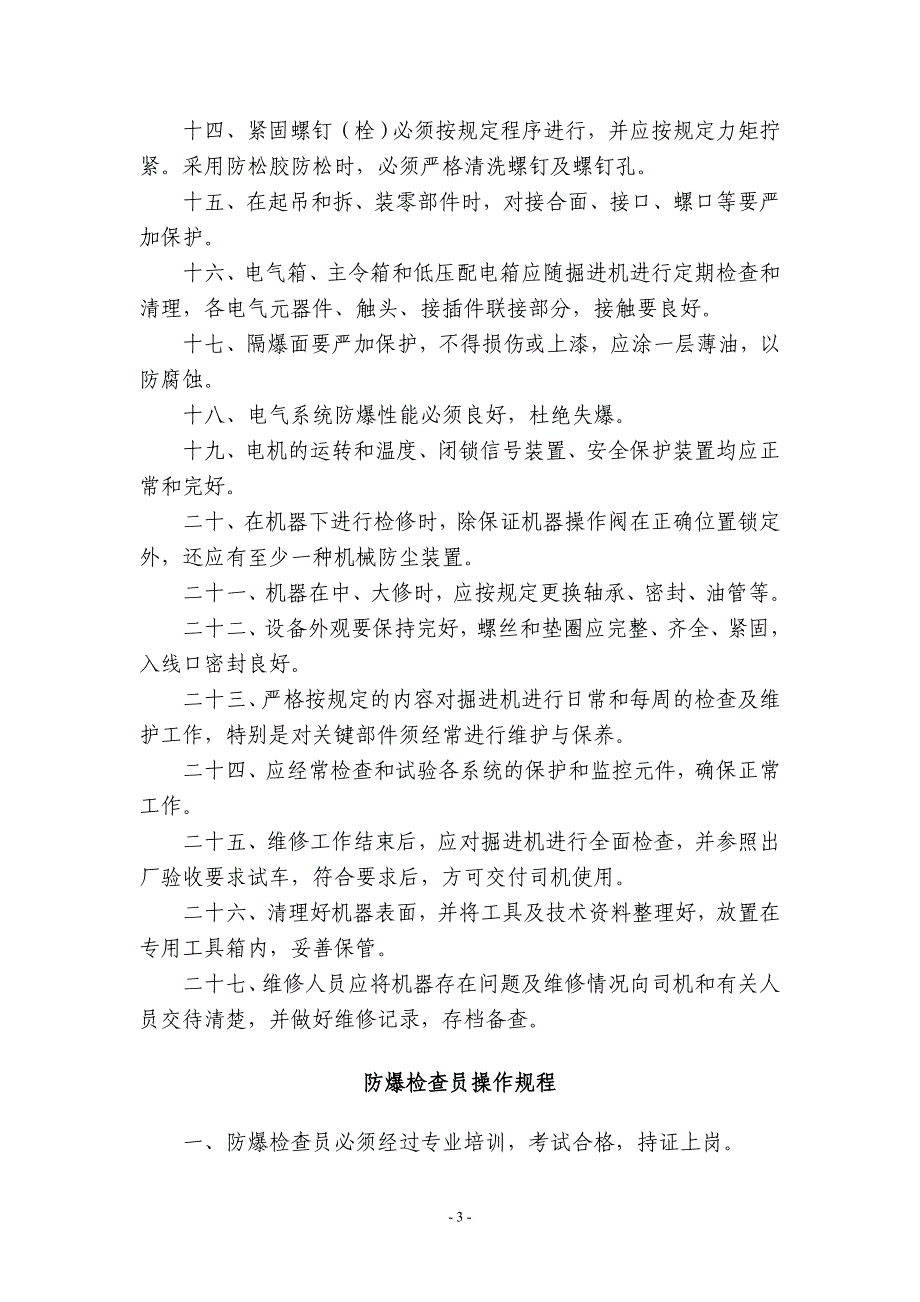 十四、紧固螺钉（栓）必须按规定程序进行，并应按规定力矩拧
紧。采用防松胶防松时，必须严格清洗螺钉及螺钉孔。
十五、在起吊和拆、装零部件时，对接合面、接口、螺口等要严
加保护。
十六、电气箱、主令箱和低压配电箱应随掘进机进行定期检查和
清理，各电气元器件、触头、接插件联接部分，接触要良好。
十七、隔爆面要严加保护，不得损伤或上漆，应涂一层薄油，以
防腐蚀。
十八、电气系统防爆性能必须良好，杜绝失爆。
十九、电机的运转和温度、闭锁信号装置、安全保护装置均应正
常和完好。
二十、在机器下进行检修时，除保证机器操作阀在正确位置锁定
外，还应有至少一种机械防尘装置。
二十一、机器在中、大修时，应按规定更换轴承、密封、油管等。
二十二、设备外观要保持完好，螺丝和垫圈应完整、齐全、紧固，
入线口密封良好。
二十三、严格按规定的内容对掘进机进行日常和每周的检查及维
护工作，特别是对关键部件须经常进行维护与保养。
二十四、应经常检查和试验各系统的保护和监控元件，确保正常
工作。
二十五、维修工作结束后，应对掘进机进行全面检查，并参照出
厂验收要求试车，符合要求后，方可交付司机使用。
二十六、清理好机器表面，并将工具及技术资料整理好，放置在
专用工具箱内，妥善保管。
二十七、维修人员应将机器存在问题及维修情况向司机和有关人
员交待清楚，并做好维修记录，存档备查。
防爆检查员操作规程
一、防爆检查员必须经过专业培训，考试合格，持证上岗。
- 3 -